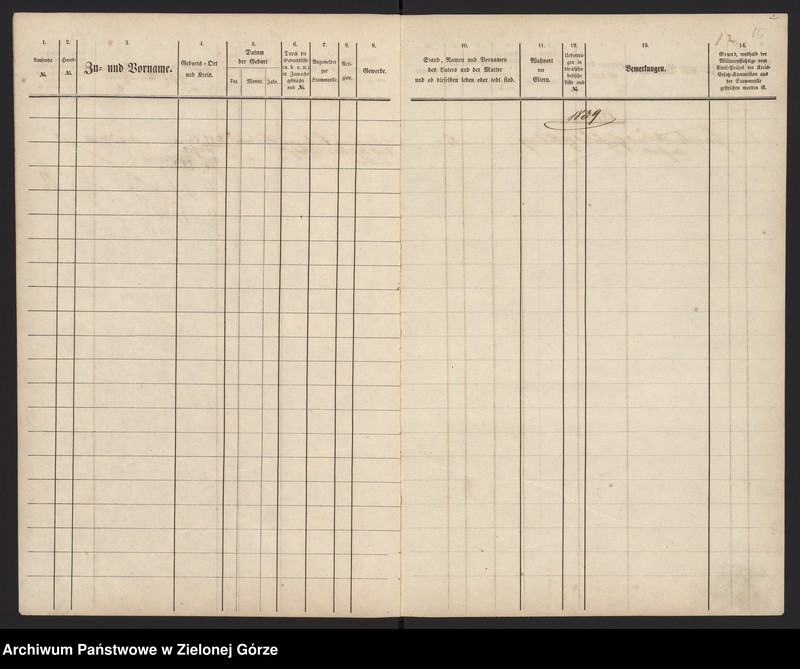 1.
Laufende
№.
2.
Haus-
№.
3.
Zu- und Vorname.
4.
Geburts-Ort
und Kreis.
5.
Datum
der Geburt
Tag
Monat.
Jahr.
6.
Durch die
Geburtsliste
gebracht
sub №.
7.
Angemeldet
zur
Stammrolle.
8.
Reli-
gion.
9.
Gewerbe.
10.
Stand, Namen und Vornamen
des Vaters und der Mutter
und ob dieselben leben oder todt sind.
11.
Wohnort
der
Eltern.
12.
Uebertra-
gen in
die alpha-
betische
Liste sub
№.
13.
Bemerkungen.
14.
Grund, weshalb der
Militairpflichtige vom
Civil-Präses der Kreis-
Ersatz-Kommission aus
der Stammrolle
gestrichen worden ist.
12
15
1839
Archiwum Państwowe w Zielonej Górze